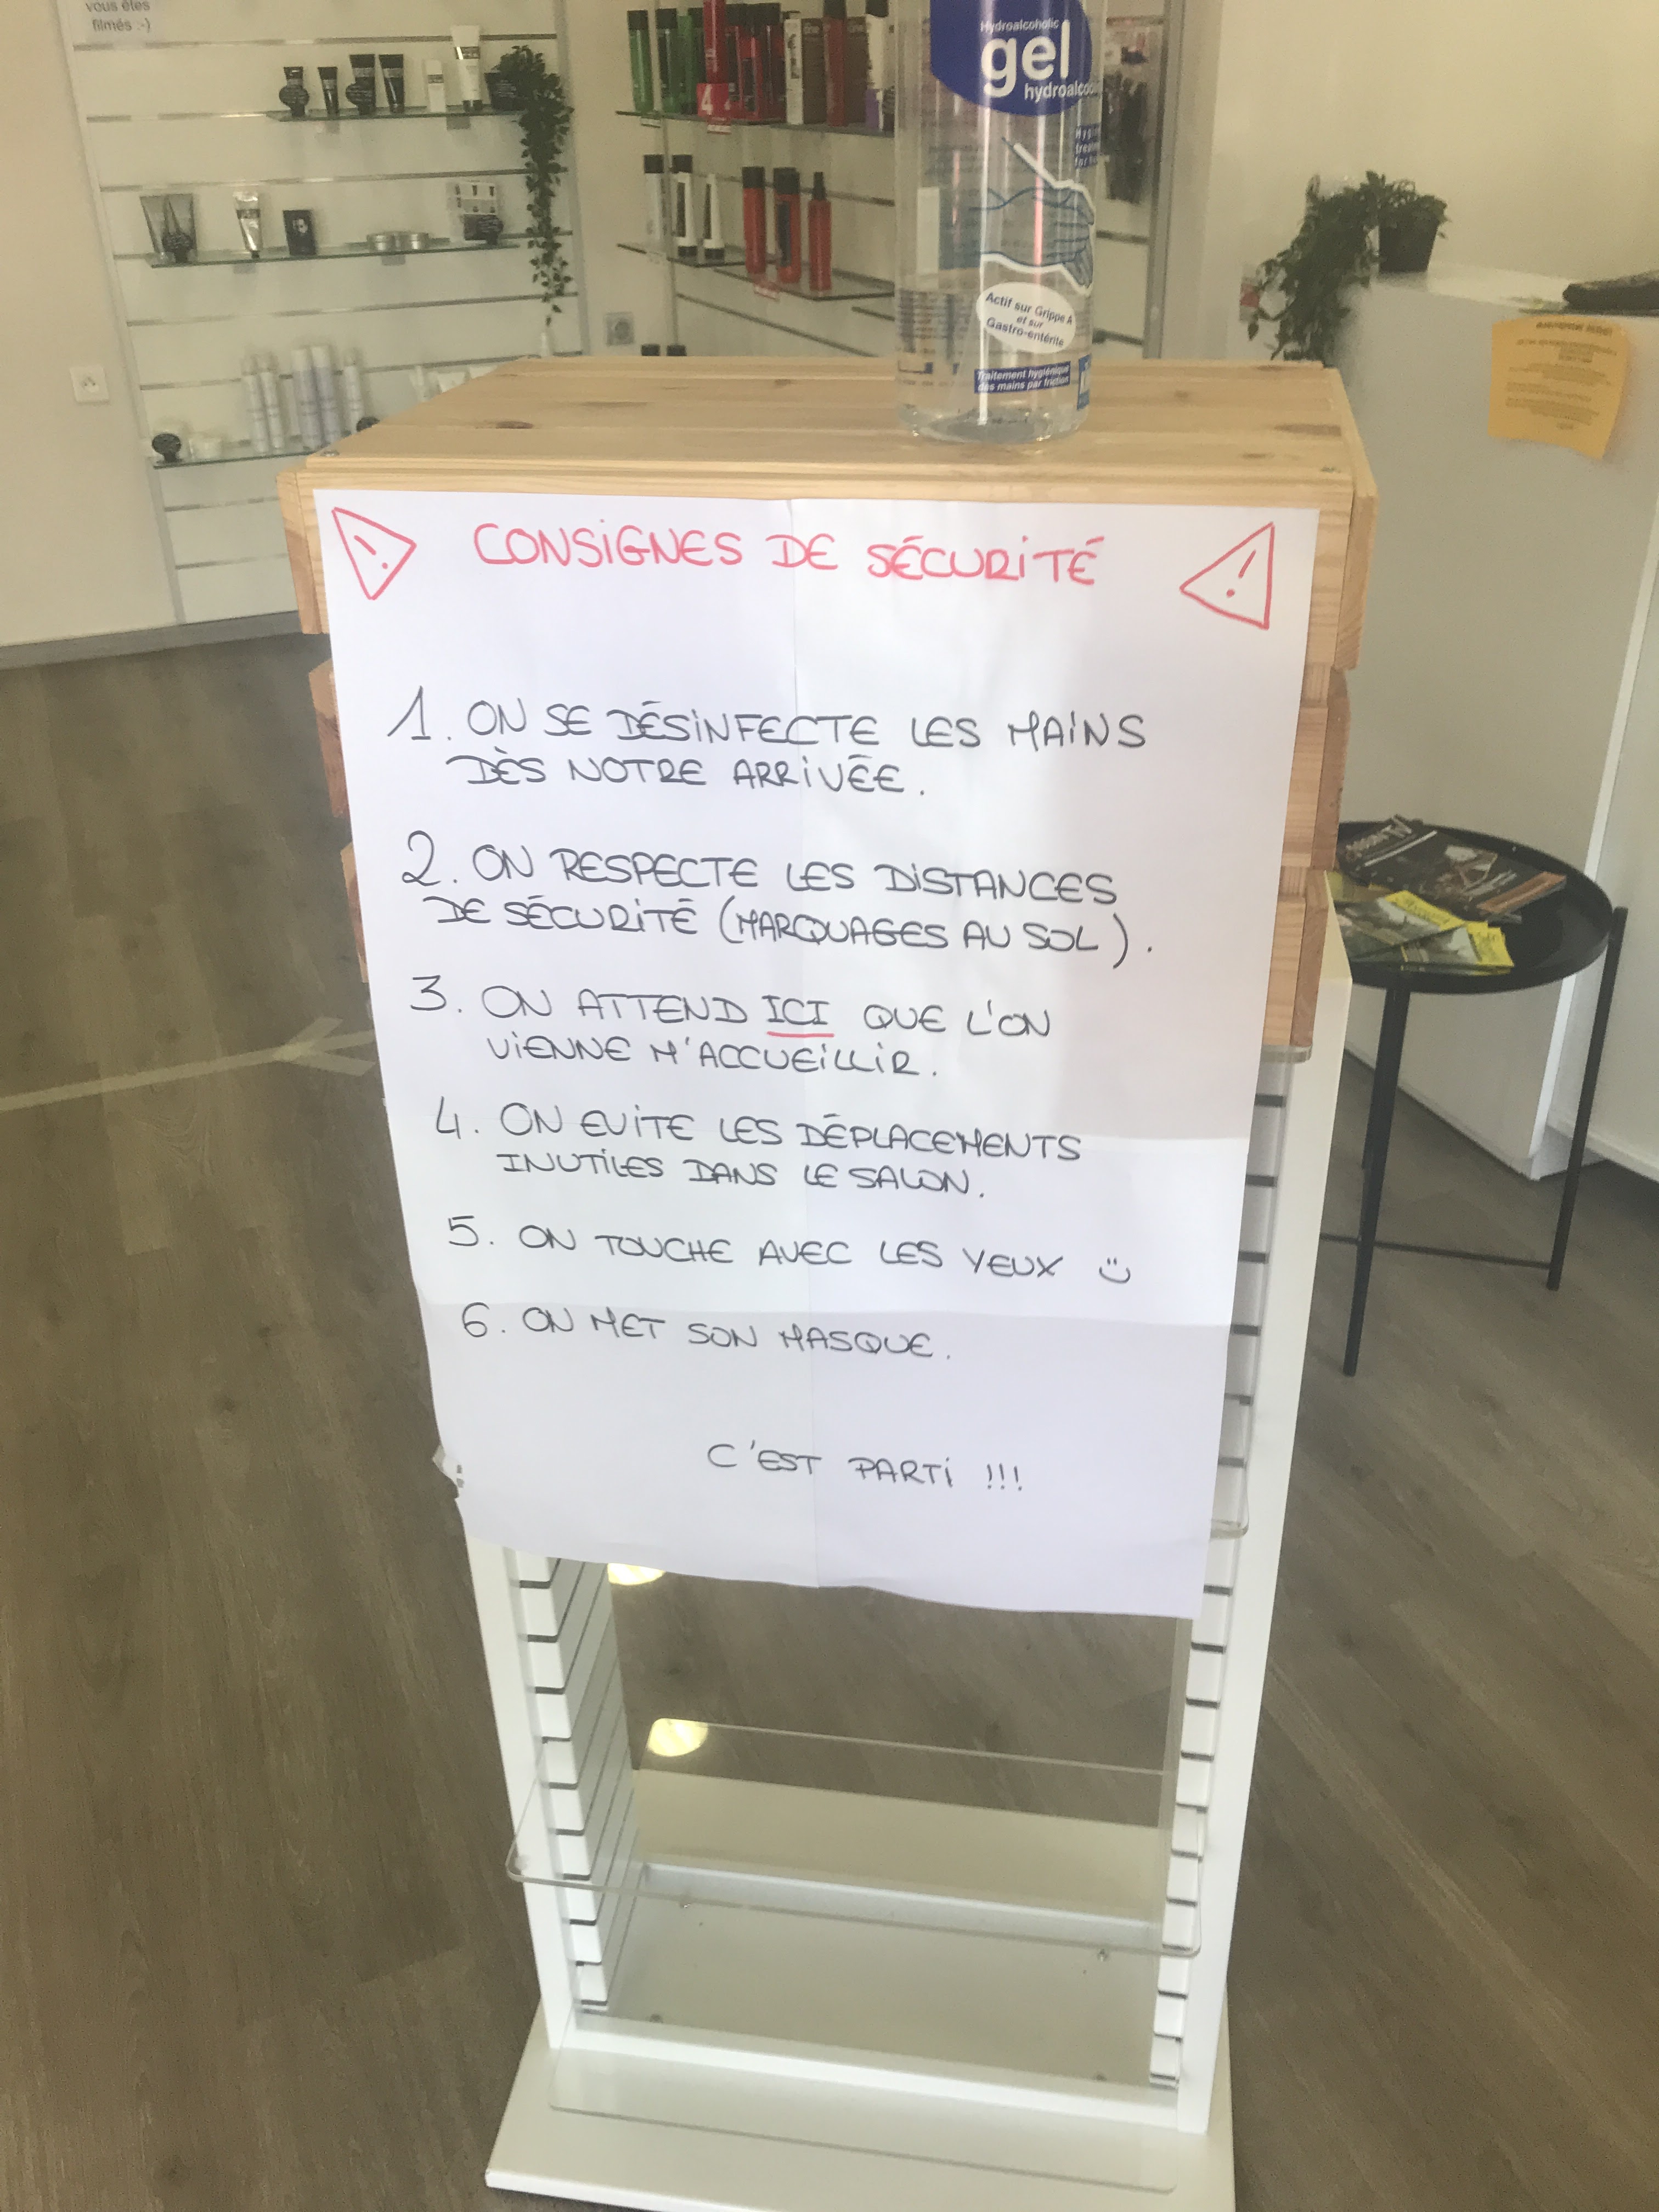 vous êtes
filmés :-)
Hydroalcoholic
gel
Actif sur Grippe A
et sur
Gastro-entérite
Traitement hygiénique
des mains par friction
CONSIGNES DE SÉCURITÉ
1. ON SE DÉSINFECTE LES MAINS
DÈS NOTRE ARRIVÉE.
2. ON RESPECTE LES DISTANCES
DE SÉCURITÉ (MARQUAGES AU SOL).
3. ON ATTEND ICI QUE L'ON
VIENNE M'ACCUEILLIR.
4. ON EVITE LES DÉPLACEMENTS
INUTILES DANS LE SALON.
5. ON TOUCHE AVEC LES YEUX
6. ON MET SON MASQUE.
C'EST PARTI !!!